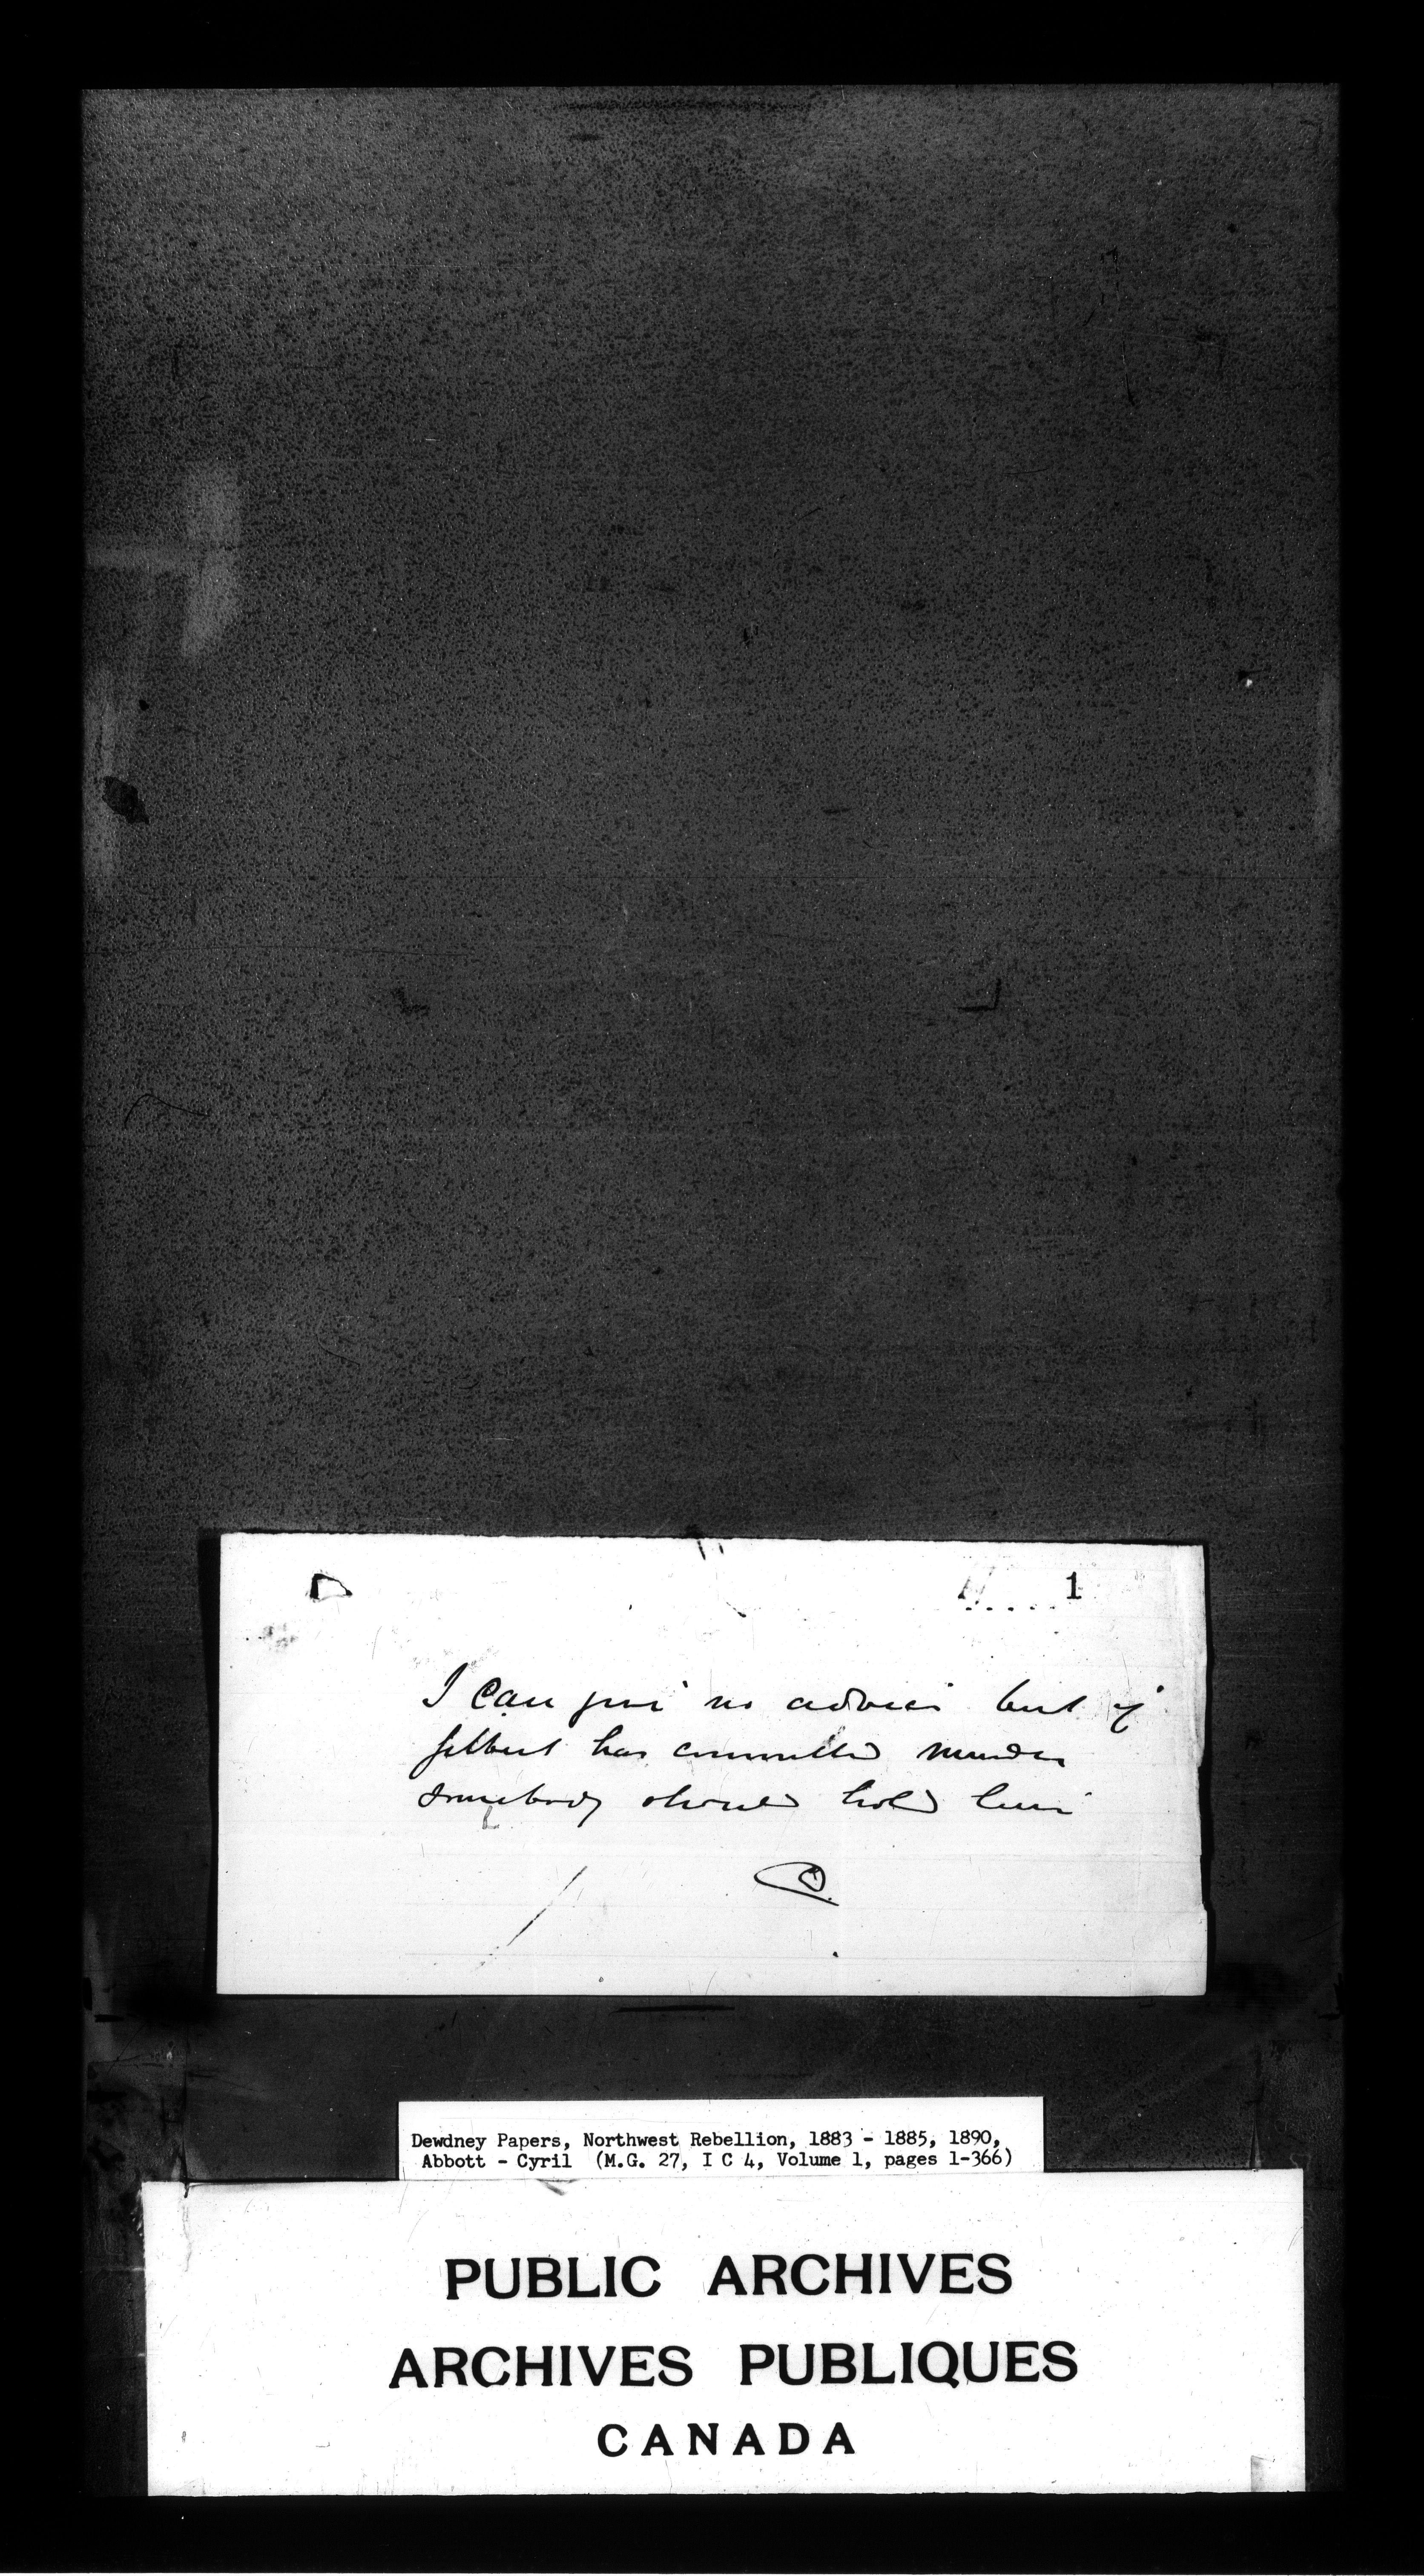 1
I can give no advice but if
Gilbert has committed murder
somebody should hold him
Dewdney Papers, Northwest Rebellion, 1883 - 1885, 1890,
Abbott - Cyril (M.G. 27, I C 4, Volume 1, pages 1-366)
PUBLIC ARCHIVES
ARCHIVES PUBLIQUES
CANADA